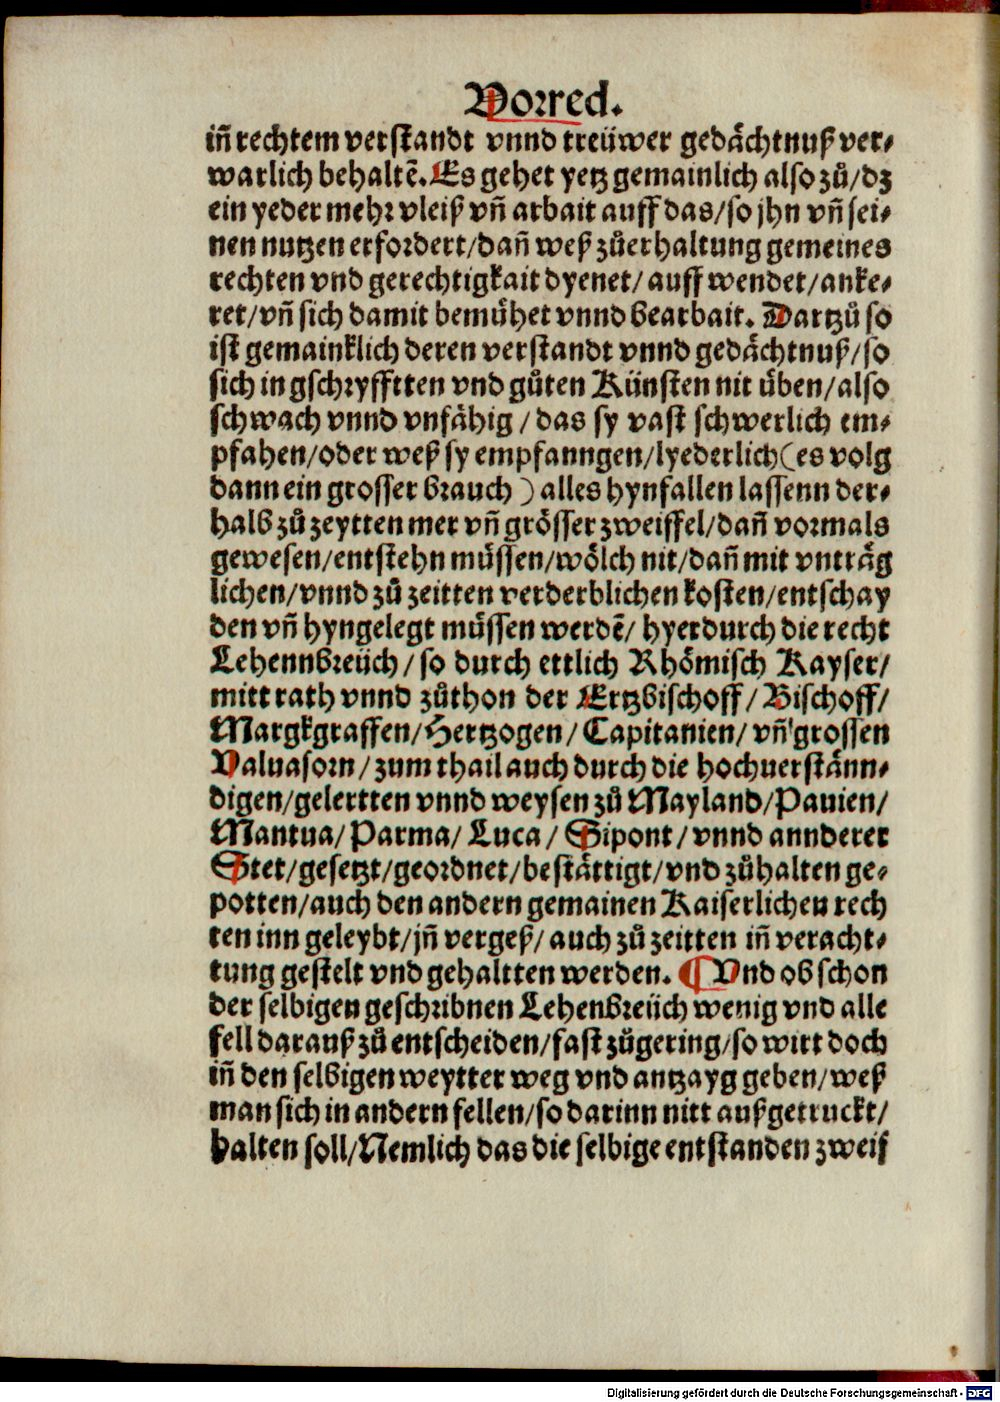 Vorred.
iñ rechtem verstandt vnnd treüwer gedaͤchtnuß ver⸗
warlich behaltẽ. Es gehet yetz gemainlich also zuͦ/dz
ein yeder mehr vleiß vñ arbait auff das/so jhn vñ sei⸗
nen nutzen erfordert/dañ weß zuͦerhaltung gemeines
rechten vnd gerechtigkait dyenet/auff wendet/anke⸗
ret/vñ sich damit bemuͤhet vnnd bearbait. Dartzuͦ so
ist gemainklich deren verstandt vnnd gedaͤchtnuß/so
sich in gschryfftten vnd guͦten Künsten nit uͤben/also
schwach vnnd vnfaͤhig/das sy vast schwerlich em⸗
pfahen/oder weß sy empfanngen/lyederlich(es volg
dann ein grosser brauch) alles hynfallen lassenn der⸗
halb zuͦ zeytten mer vñ groͤsser zweiffel/dañ vormals
gewesen/entstehn muͤssen/woͤlch nit/dañ mit vntraͤg
lichen/vnnd zuͦ zeitten verderblichen kosten/entschay
den vñ hyngelegt muͤssen werdẽ/hyerdurch die recht
Lehennbreüch/so durch ettlich Rhoͤmisch Kayser/
mitt rath vnnd zuͦthon der Ertzbischoff/Bischoff/
Margkgraffen/Hertzogen/Capitanien/vñ grossen
Valuasorn/zum thail auch durch die hochuerstaͤnn⸗
digen/gelertten vnnd weysen zuͦ Mayland/Pauien/
Mantua/Parma/Luca/Sipont/vnnd annderer
Stet/gesetzt/geordnet/bestaͤttigt/vnd zuͦhalten ge⸗
potten/auch den andern gemainen Kaiserlichen rech
ten inn geleybt/jñ vergeß/auch zuͦ zeitten iñ veracht⸗
tung gestelt vnd gehaltten werden. ¶ Vnd ob schon
der selbigen geschribnen Lehenbreüch wenig vnd alle
fell darauß zuͦ entscheiden/fast zuͦgering/so wirt doch
iñ den selbigen weytter weg vnd antzayg geben/weß
man sich in andern fellen/so darinn nitt außgetruckt/
halten soll/Nemlich das die selbige entstanden zweif
Digitalisierung gefördert durch die Deutsche Forschungsgemeinschaft - DFG